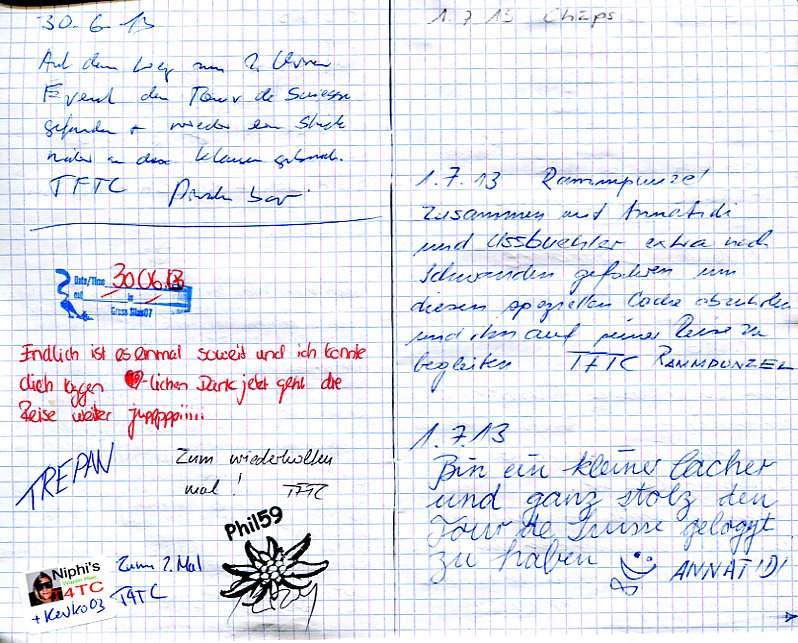 30.6.13
Auf dem Weg zum 2. Urner
Event den Tour de Suisse
gefunden + wieder ein Stück
näher an den Klausen gebracht.
TFTC
Date/Time 30.06.13
Endlich ist es einmal soweit und ich konnte
dich loggen ❤-lichen Dank jetzt geht die
Reise weiter juppppiiiii
TREPAN
Zum wiederholten
mal! TFTC
Phil59
Niphi's
Waren Hier
T4TC
+ Keuko03
Zum 2. Mal
T4TC
1.7.13 Chäps
1.7.13 Rammpunzel
Zusammen mit Annatidi
und Ussbuehler extra nach
Schwanden gefahren um
diesen speziellen Cache abzuholen
und ihn auf seiner Reise zu
begleiten TFTC RAMMPUNZEL
1.7.13
Bin ein kleiner Cacher
und ganz stolz den
Tour de Suisse geloggt
zu haben ANNATIDI